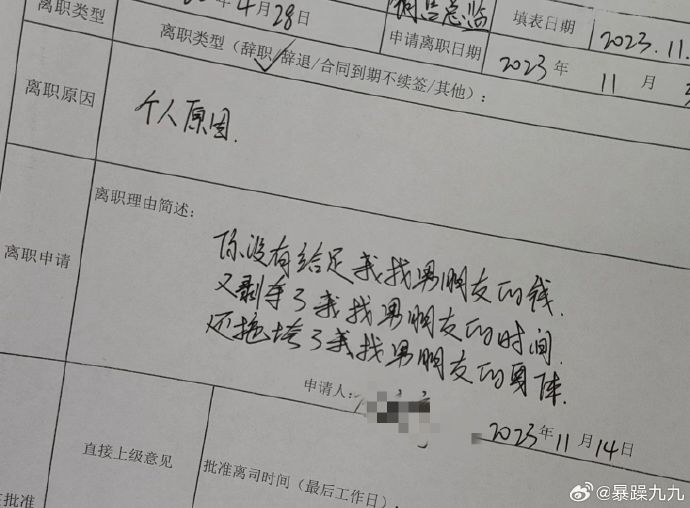 离职类型
年4月28日
销售总监
填表日期
2023.11.
申请离职日期
2023年11月
离职类型（辞职/辞退/合同到期不续签/其他）：
离职原因
个人原因.
离职申请
离职理由简述：
你没有给足我找男朋友的钱.
又剥夺了我找男朋友的时间.
还拖垮了我找男朋友的身体.
申请人：
2023年11月14日
直接上级意见
批准离司时间（最后工作日）：
批准
@暴躁九九